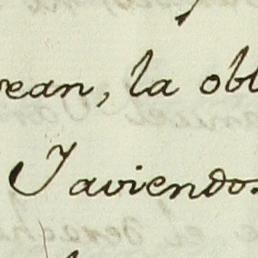 vean, la obl
Javiendo